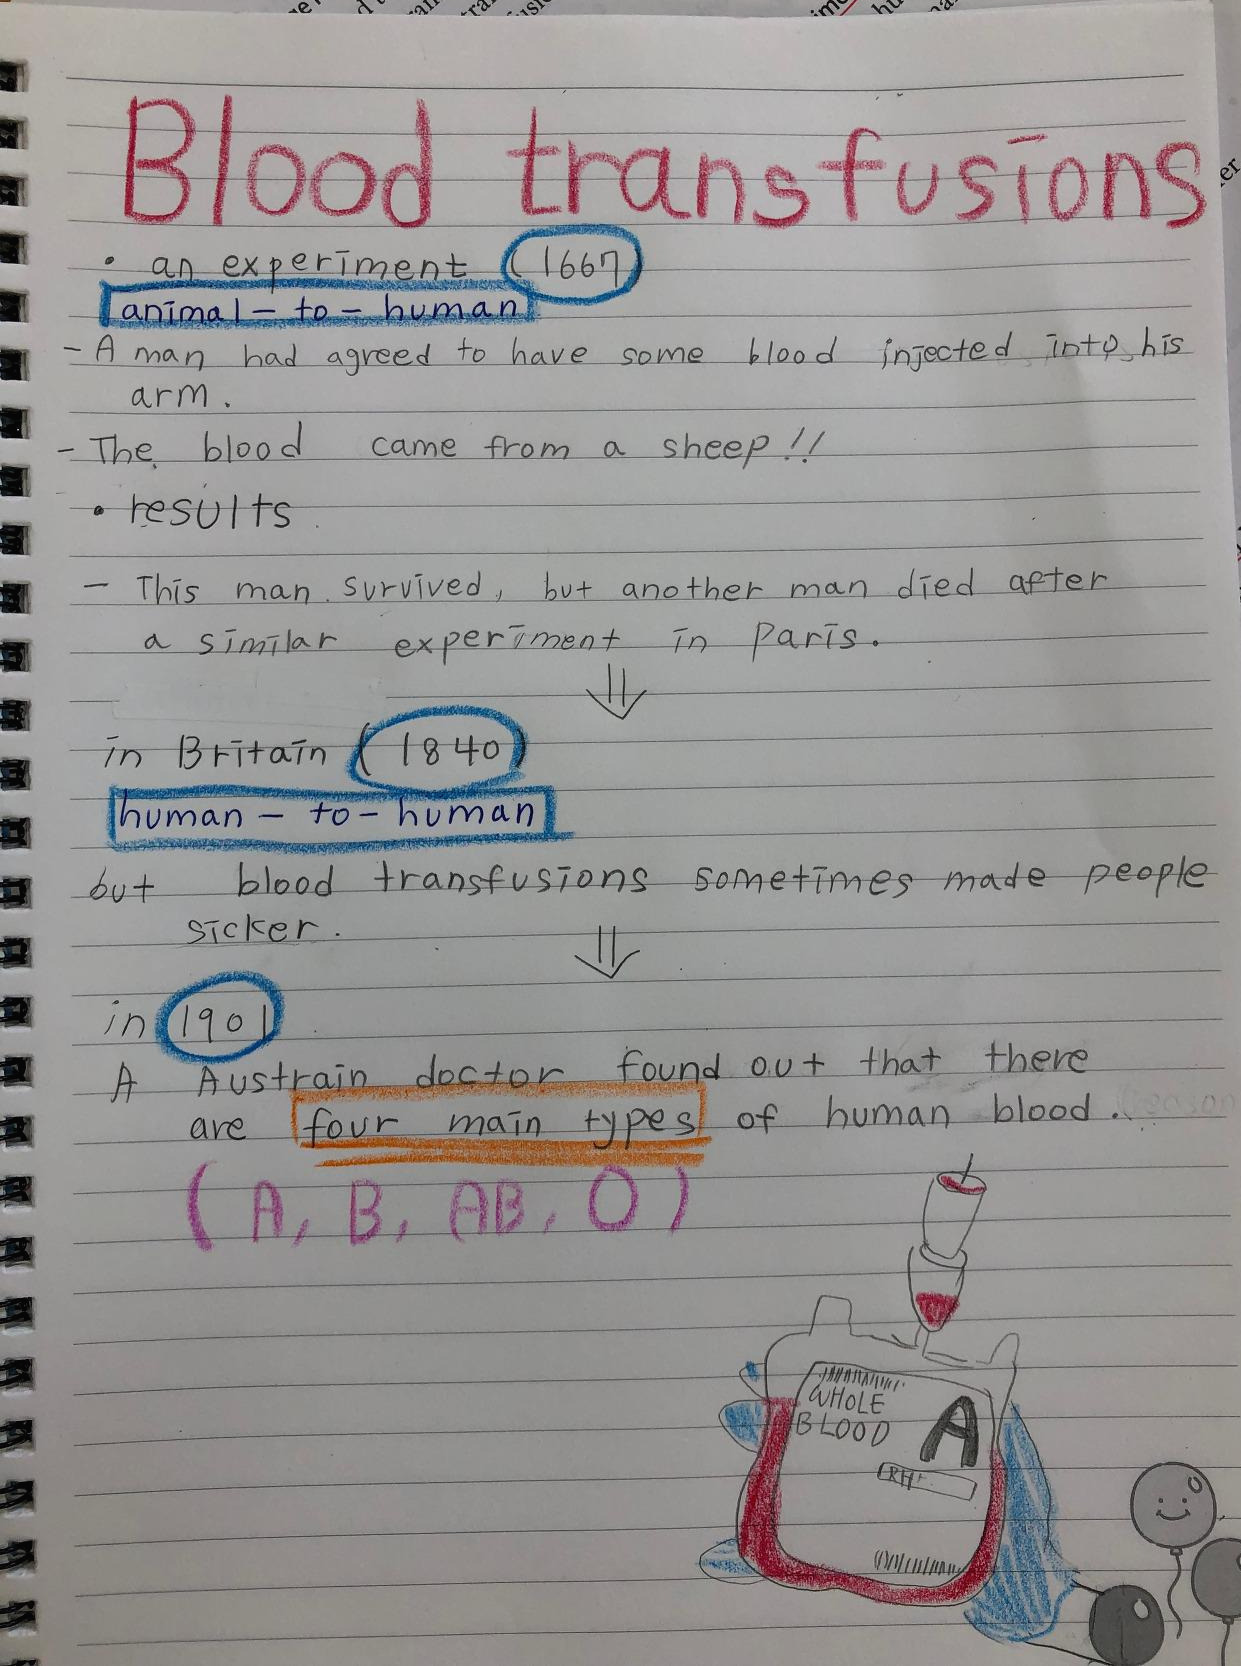 Blood transfusions
• an experiment (1667)
animal-to-human
- A man had agreed to have some blood injected into his
arm.
- The blood came from a sheep!!
• results
- This man survived, but another man died after
a similar experiment in Paris.
in Britain (1840)
human-to-human
but blood transfusions sometimes made people
sicker.
in 1901
A Austrain doctor found out that there
are four main types of human blood.
(A, B, AB, O)
WHOLE
BLOOD
A
RH